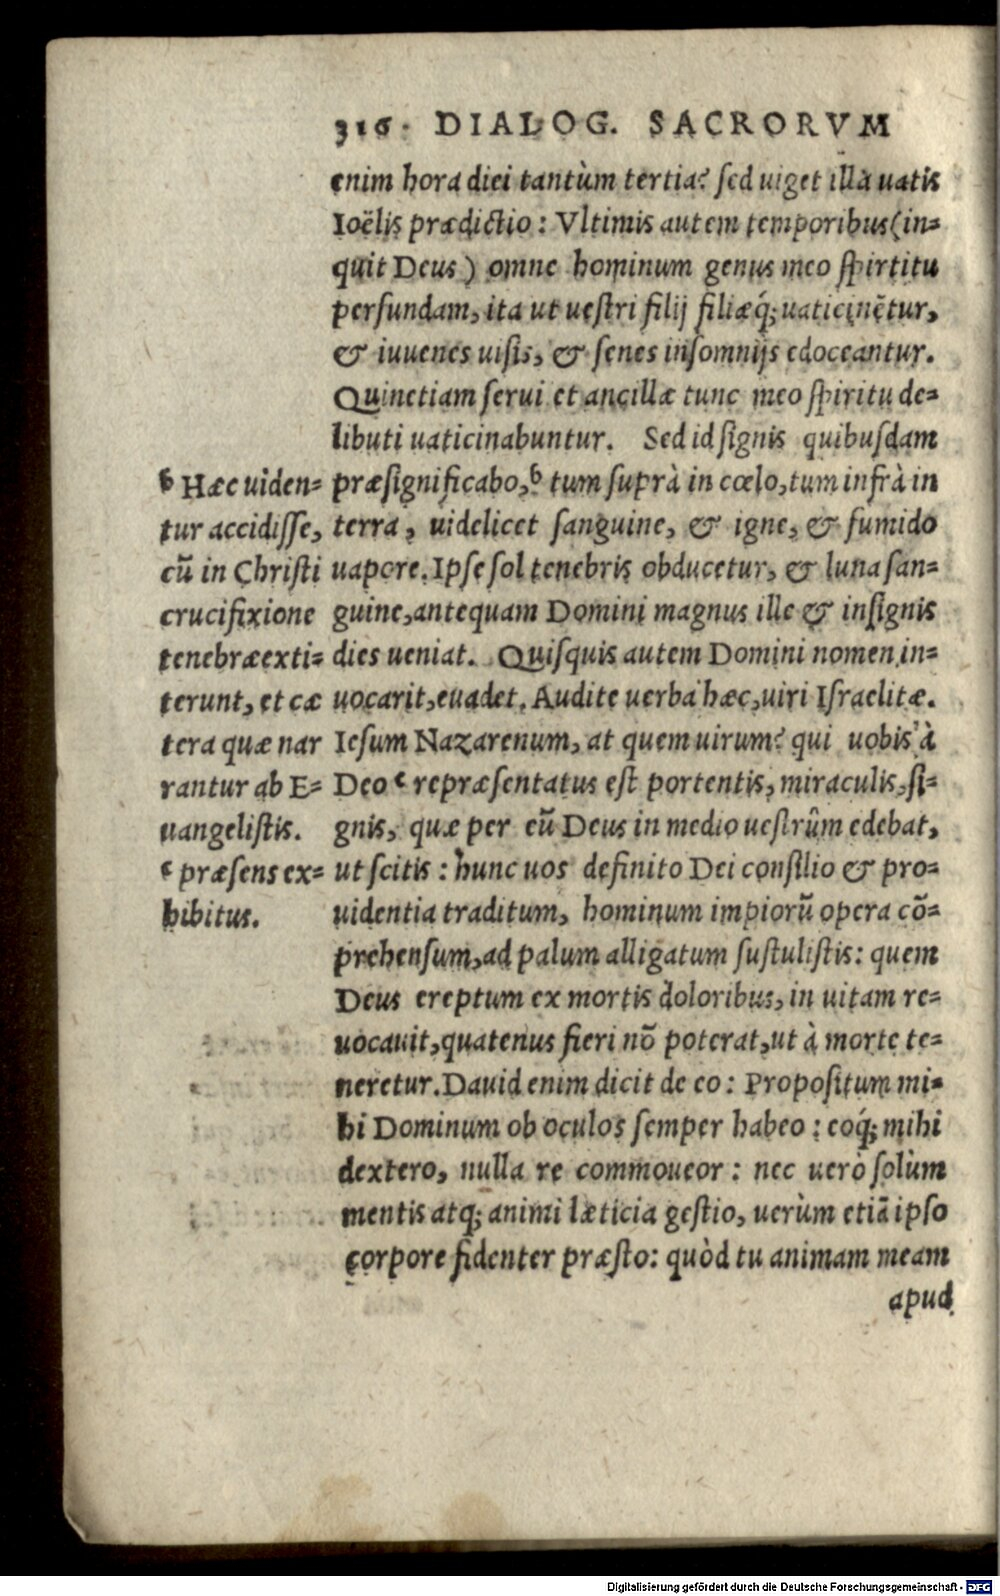 316. DIALOG. SACRORVM
enim hora diei tantùm tertia? sed uiget illa uatis
Ioëlis prædictio: Vltimis autem temporibus (in=
quit Deus) omne hominum genus meo spirtitu
perfundam, ita ut uestri filij filiæq́; uaticinẽtur,
& iuuenes uisis, & senes insomnijs edoceantur.
Quinetiam serui et ancillæ tunc meo spiritu de=
libuti uaticinabuntur. Sed id signis quibusdam
præsignificabo, ᵇ tum suprà in cœlo, tum infrà in
terra, uidelicet sanguine, & igne, & fumido
uapore. Ipse sol tenebris obducetur, & luna san=
guine, antequam Domini magnus ille & insignis
dies ueniat. Quisquis autem Domini nomen in=
uocarit, euadet. Audite uerba hæc, uiri Israelitæ.
Iesum Nazarenum, at quem uirum? qui uobis à
Deo ᶜ repræsentatus est portentis, miraculis, si=
gnis, quæ per eũ Deus in medio uestrûm edebat,
ut scitis: hunc uos definito Dei consilio & pro=
uidentia traditum, hominum impiorũ opera cõ=
prehensum, ad palum alligatum sustulistis: quem
Deus ereptum ex mortis doloribus, in uitam re=
uocauit, quatenus fieri nõ poterat, ut à morte te=
neretur. Dauid enim dicit de eo: Propositum mi=
hi Dominum ob oculos semper habeo: eoq́; mihi
dextero, nulla re commoueor: nec uerò solùm
mentis atq; animi læticia gestio, uerùm etiã ipso
corpore fidenter præsto: quòd tu animam meam
apud
ᵇ Hæc uiden=
tur accidisse,
cũ in Christi
crucifixione
tenebræ exti=
terunt, et cæ
tera quæ nar
rantur ab E=
uangelistis.
ᶜ præsens ex=
hibitus.
Digitalisierung gefördert durch die Deutsche Forschungsgemeinschaft - DFG